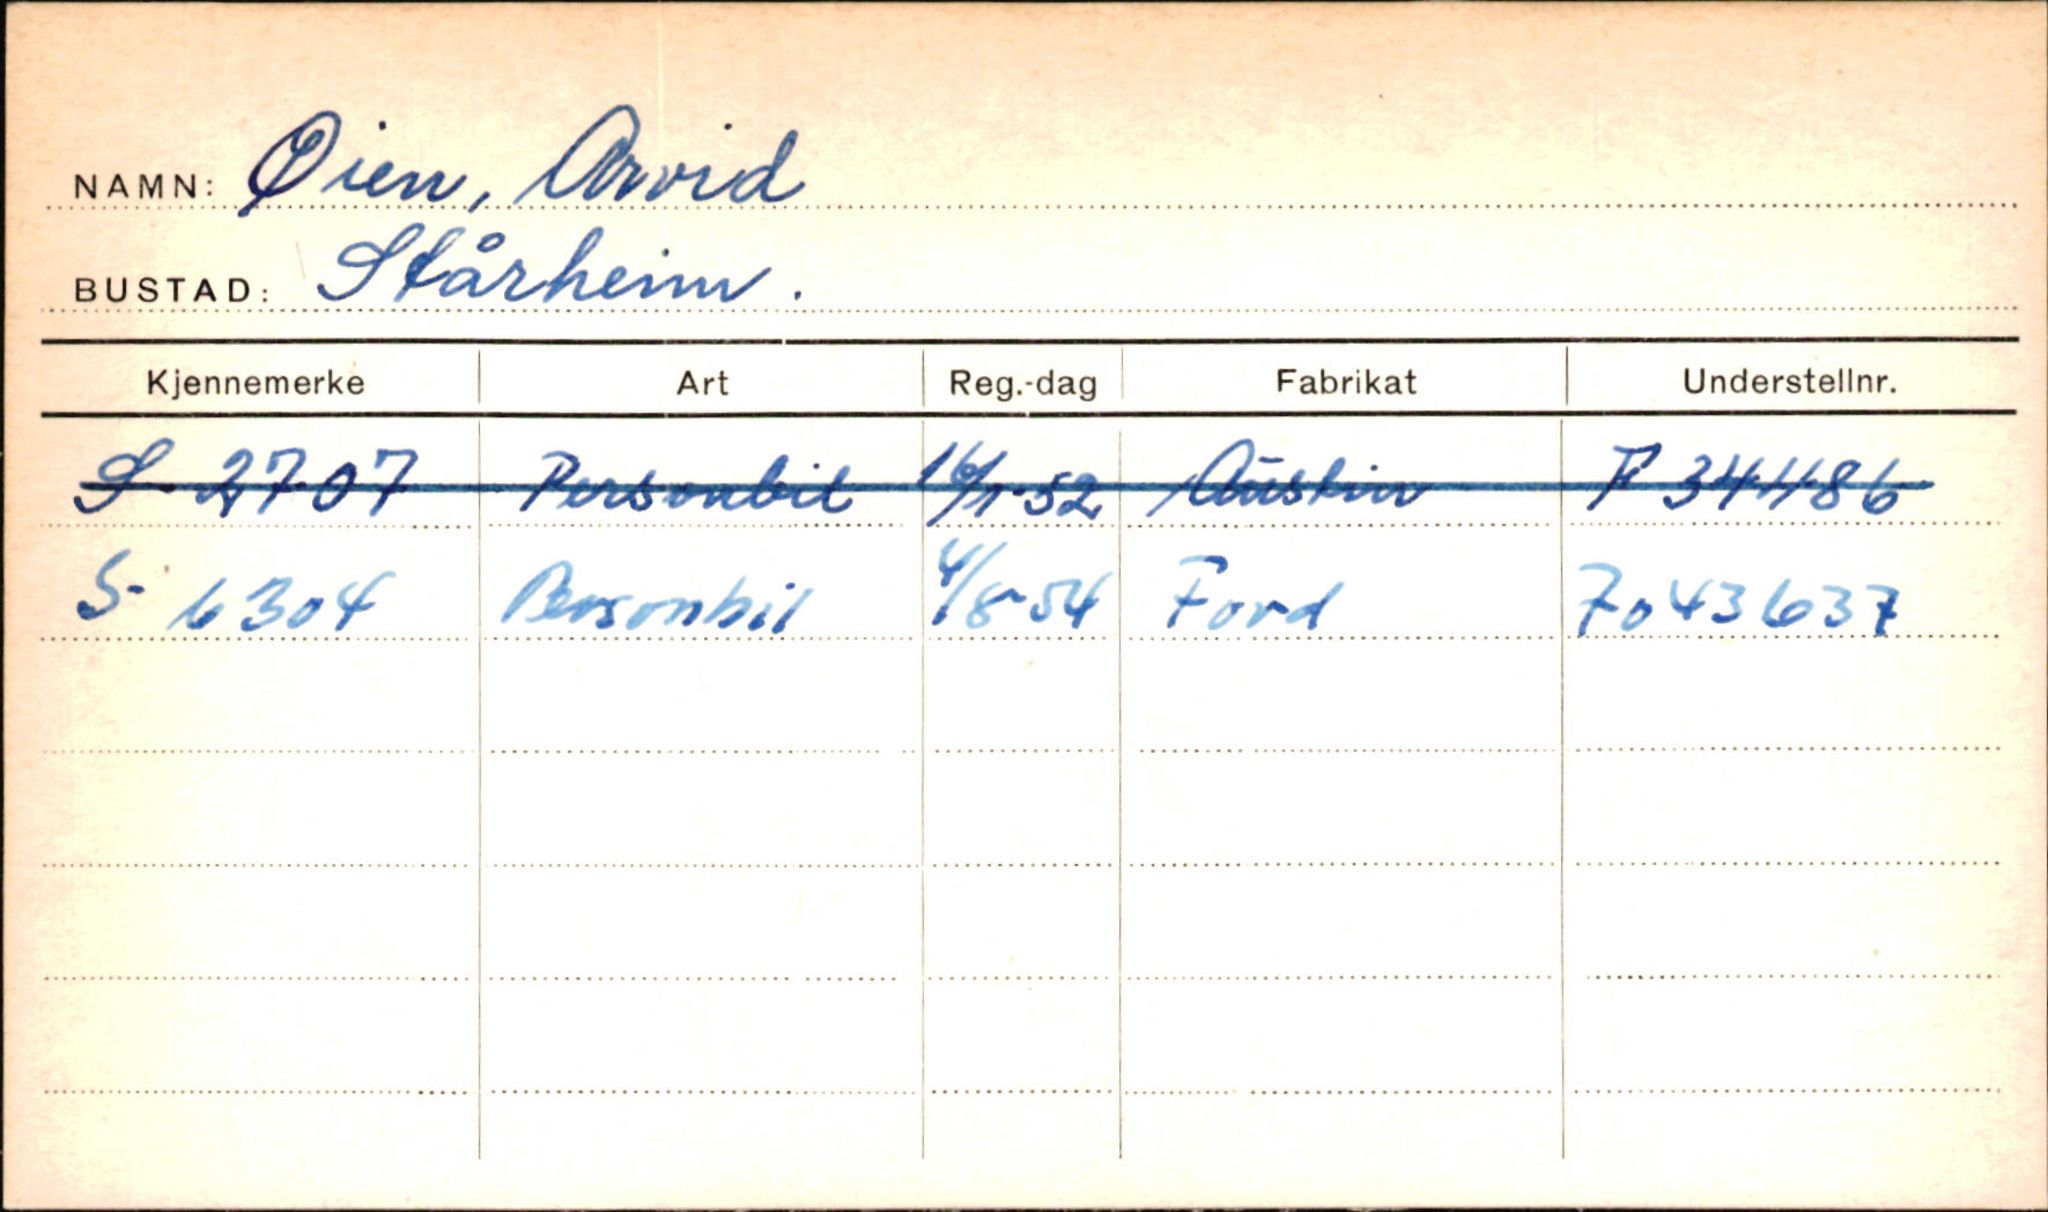 NAMN: Øien, Arvid
BUSTAD: Stårheim.
Kjennemerke Art Reg.-dag Fabrikat Understellnr.
S-2707 Personbil 16/1-52 Austin
S-6304 Personbil 4/8-54 Ford 7043637